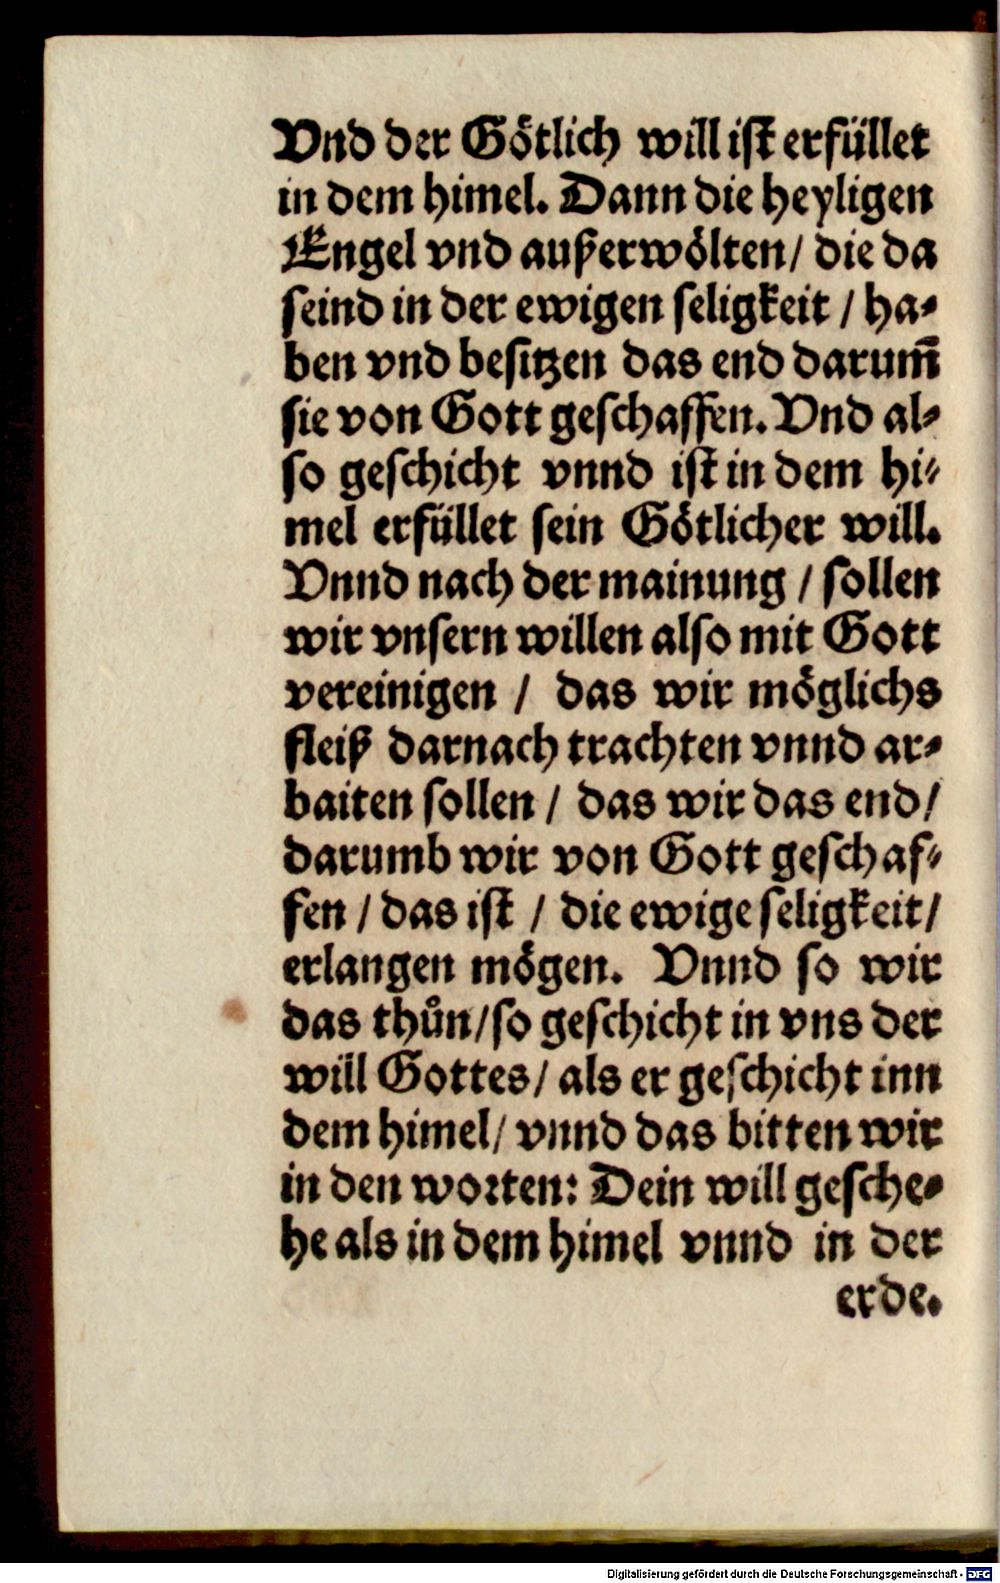 Vnd der Götlich will iſt erfüllet
in dem himel. Dann die heyligen
Engel vnd außerwölten/ die da
ſeind in der ewigen ſeligkeit / ha⸗
ben vnd beſitzen das end darum̃
ſie von Gott geſchaffen. Vnd al⸗
ſo geſchicht vnnd iſt in dem hi⸗
mel erfüllet ſein Götlicher will.
Vnnd nach der mainung / ſollen
wir vnſern willen alſo mit Gott
vereinigen / das wir möglichs
fleiß darnach trachten vnnd ar⸗
baiten ſollen / das wir das end/
darumb wir von Gott geſchaf⸗
fen / das iſt / die ewige ſeligkeit/
erlangen mögen. Vnnd ſo wir
das thůn/ſo geſchicht in vns der
will Gottes/ als er geſchicht inn
dem himel/ vnnd das bitten wir
in den woꝛten: Dein will geſche⸗
he als in dem himel vnnd in der
erde.
Digitalisierung gefördert durch die Deutsche Forschungsgemeinschaft - DFG